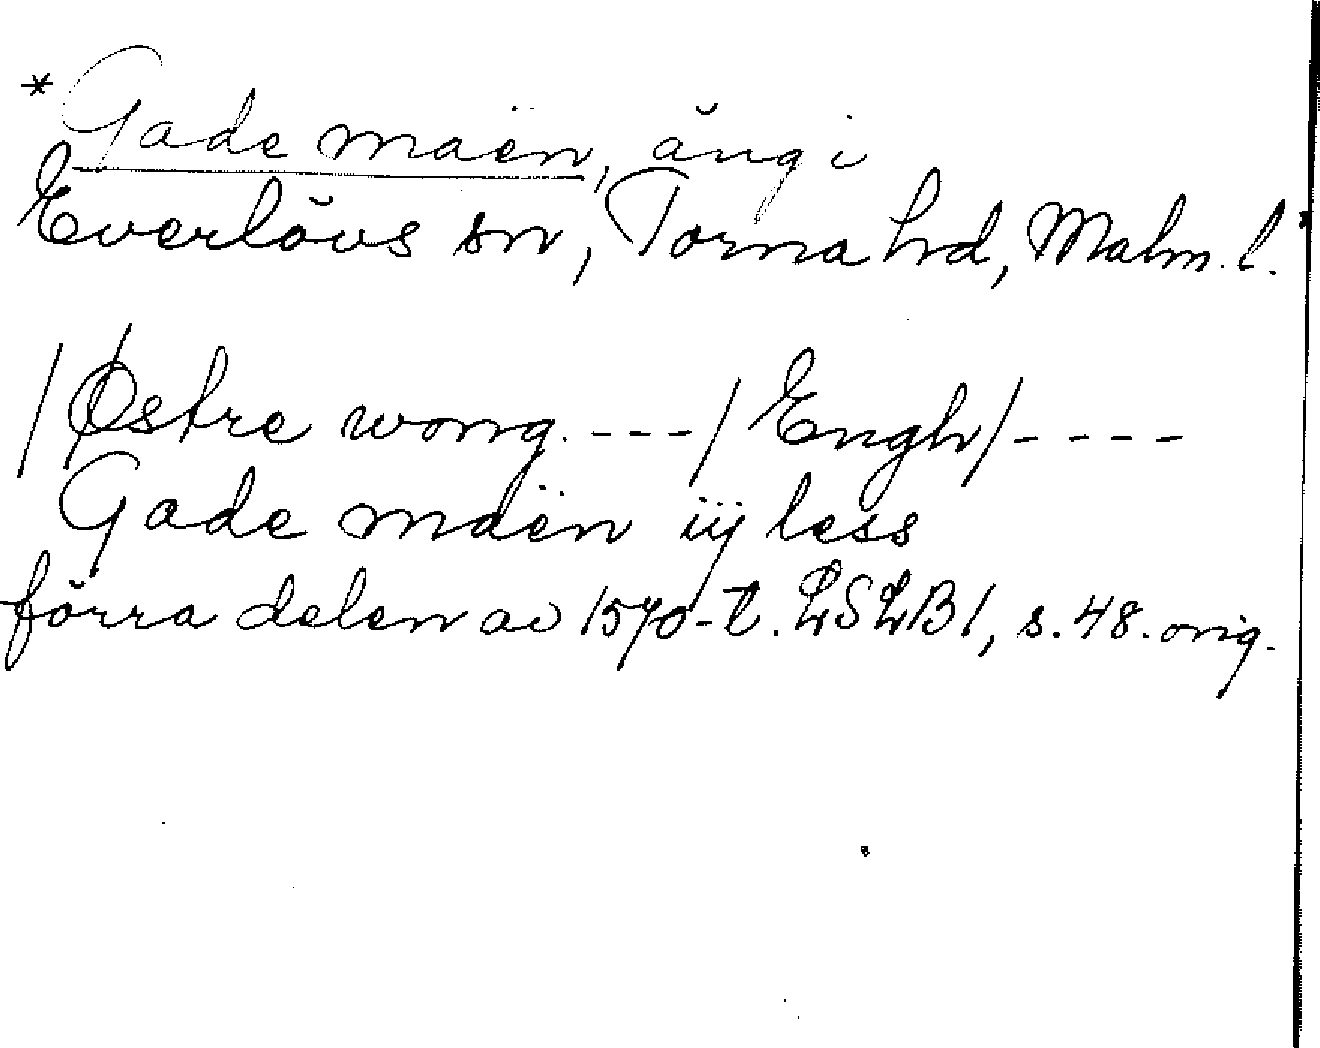 * Gade maën, äng i
Everlövs sn, Torna hd, Malm. l.
/Østre wong. ---/ Engh/----
Gade maën iij less
förra delen av 1570-t. LSLB 1, s. 48. orig.